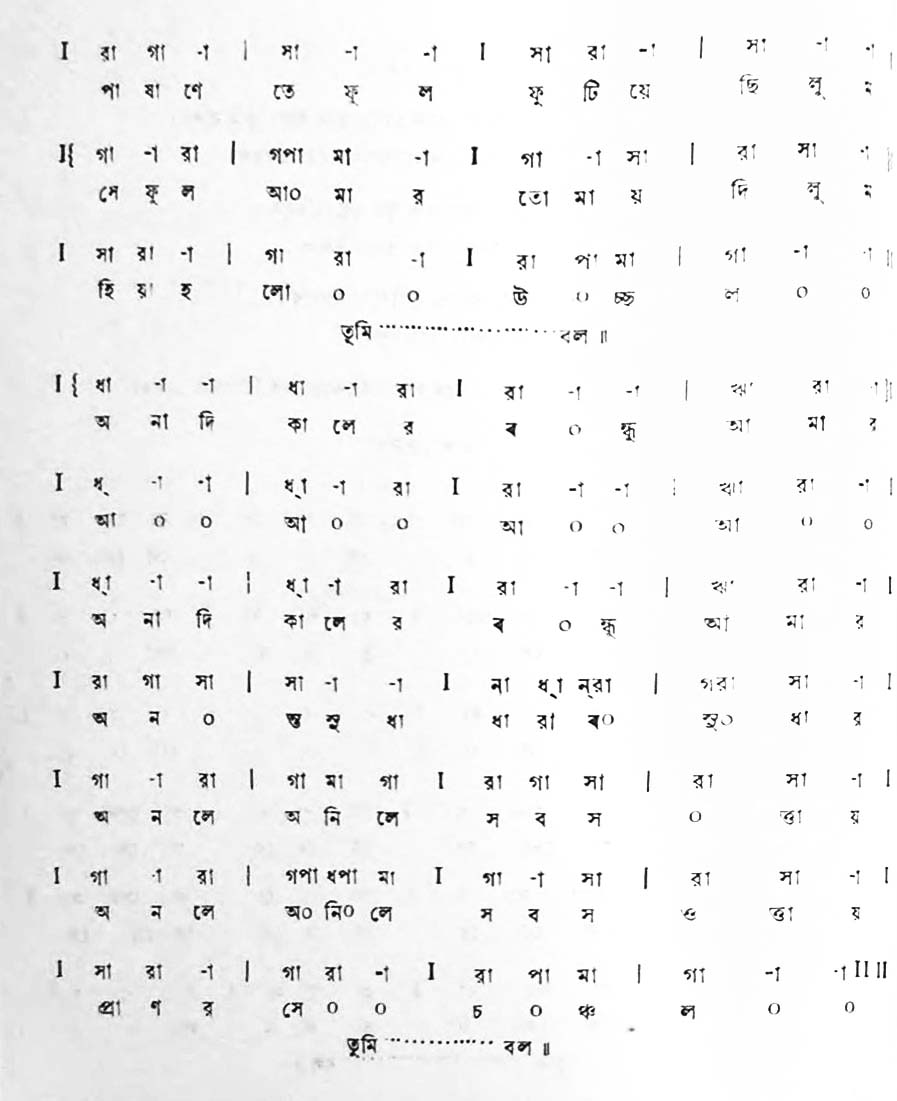 I রা গা -া | সা -া -া I সা রা -া | সা -া -া |
পা ষা ণে তে ফু ল ফু টি য়ে ছি লু ম
I{ গা -া রা | গপা মা -া I গা -া সা | রা সা -া ||
সে ফু ল আ০ মা র তো মা য় দি লু ম
I সা রা -া | গা রা -া I রা পা মা | গা -া -া ||
হি য়া হ লো ০ ০ উ ০ চ্ছ ল ০ ০
তুমি ........................ বল ॥
I{ ধা -া -া | ধা -া রা I রা -া -া | ঋা রা -া}|
অ না দি কা লে র ব ০ ন্ধু আ মা র
I ধ্ -া -া | ধ্া -া রা I রা -া -া | ঋা রা -া |
আ ০ ০ আ ০ ০ আ ০ ০ আ ০ ০
I ধ্া -া -া | ধ্া -া রা I রা -া -া | ঋা রা -া |
অ না দি কা লে র ব ০ ন্ধু আ মা র
I রা গা সা | সা -া -া I না ধ্া ন্রা | গরা সা -া I
অ ন ০ ন্ত সু ধা ধা রা ব০ সু০ ধা র
I গা -া রা | গা মা গা I রা গা সা | রা সা -া I
অ ন লে অ নি লে স ব স ০ ত্তা য়
I গা -া রা | গপা ধপা মা I গা -া সা | রা সা -া I
অ ন লে অ০ নি০ লে স ব স ও ত্তা য়
I সা রা -া | গা রা -া I রা পা মা | গা -া -া II II
প্রা ণ র সে ০ ০ চ ০ ঞ্চ ল ০ ০
তুমি .............. বল ॥